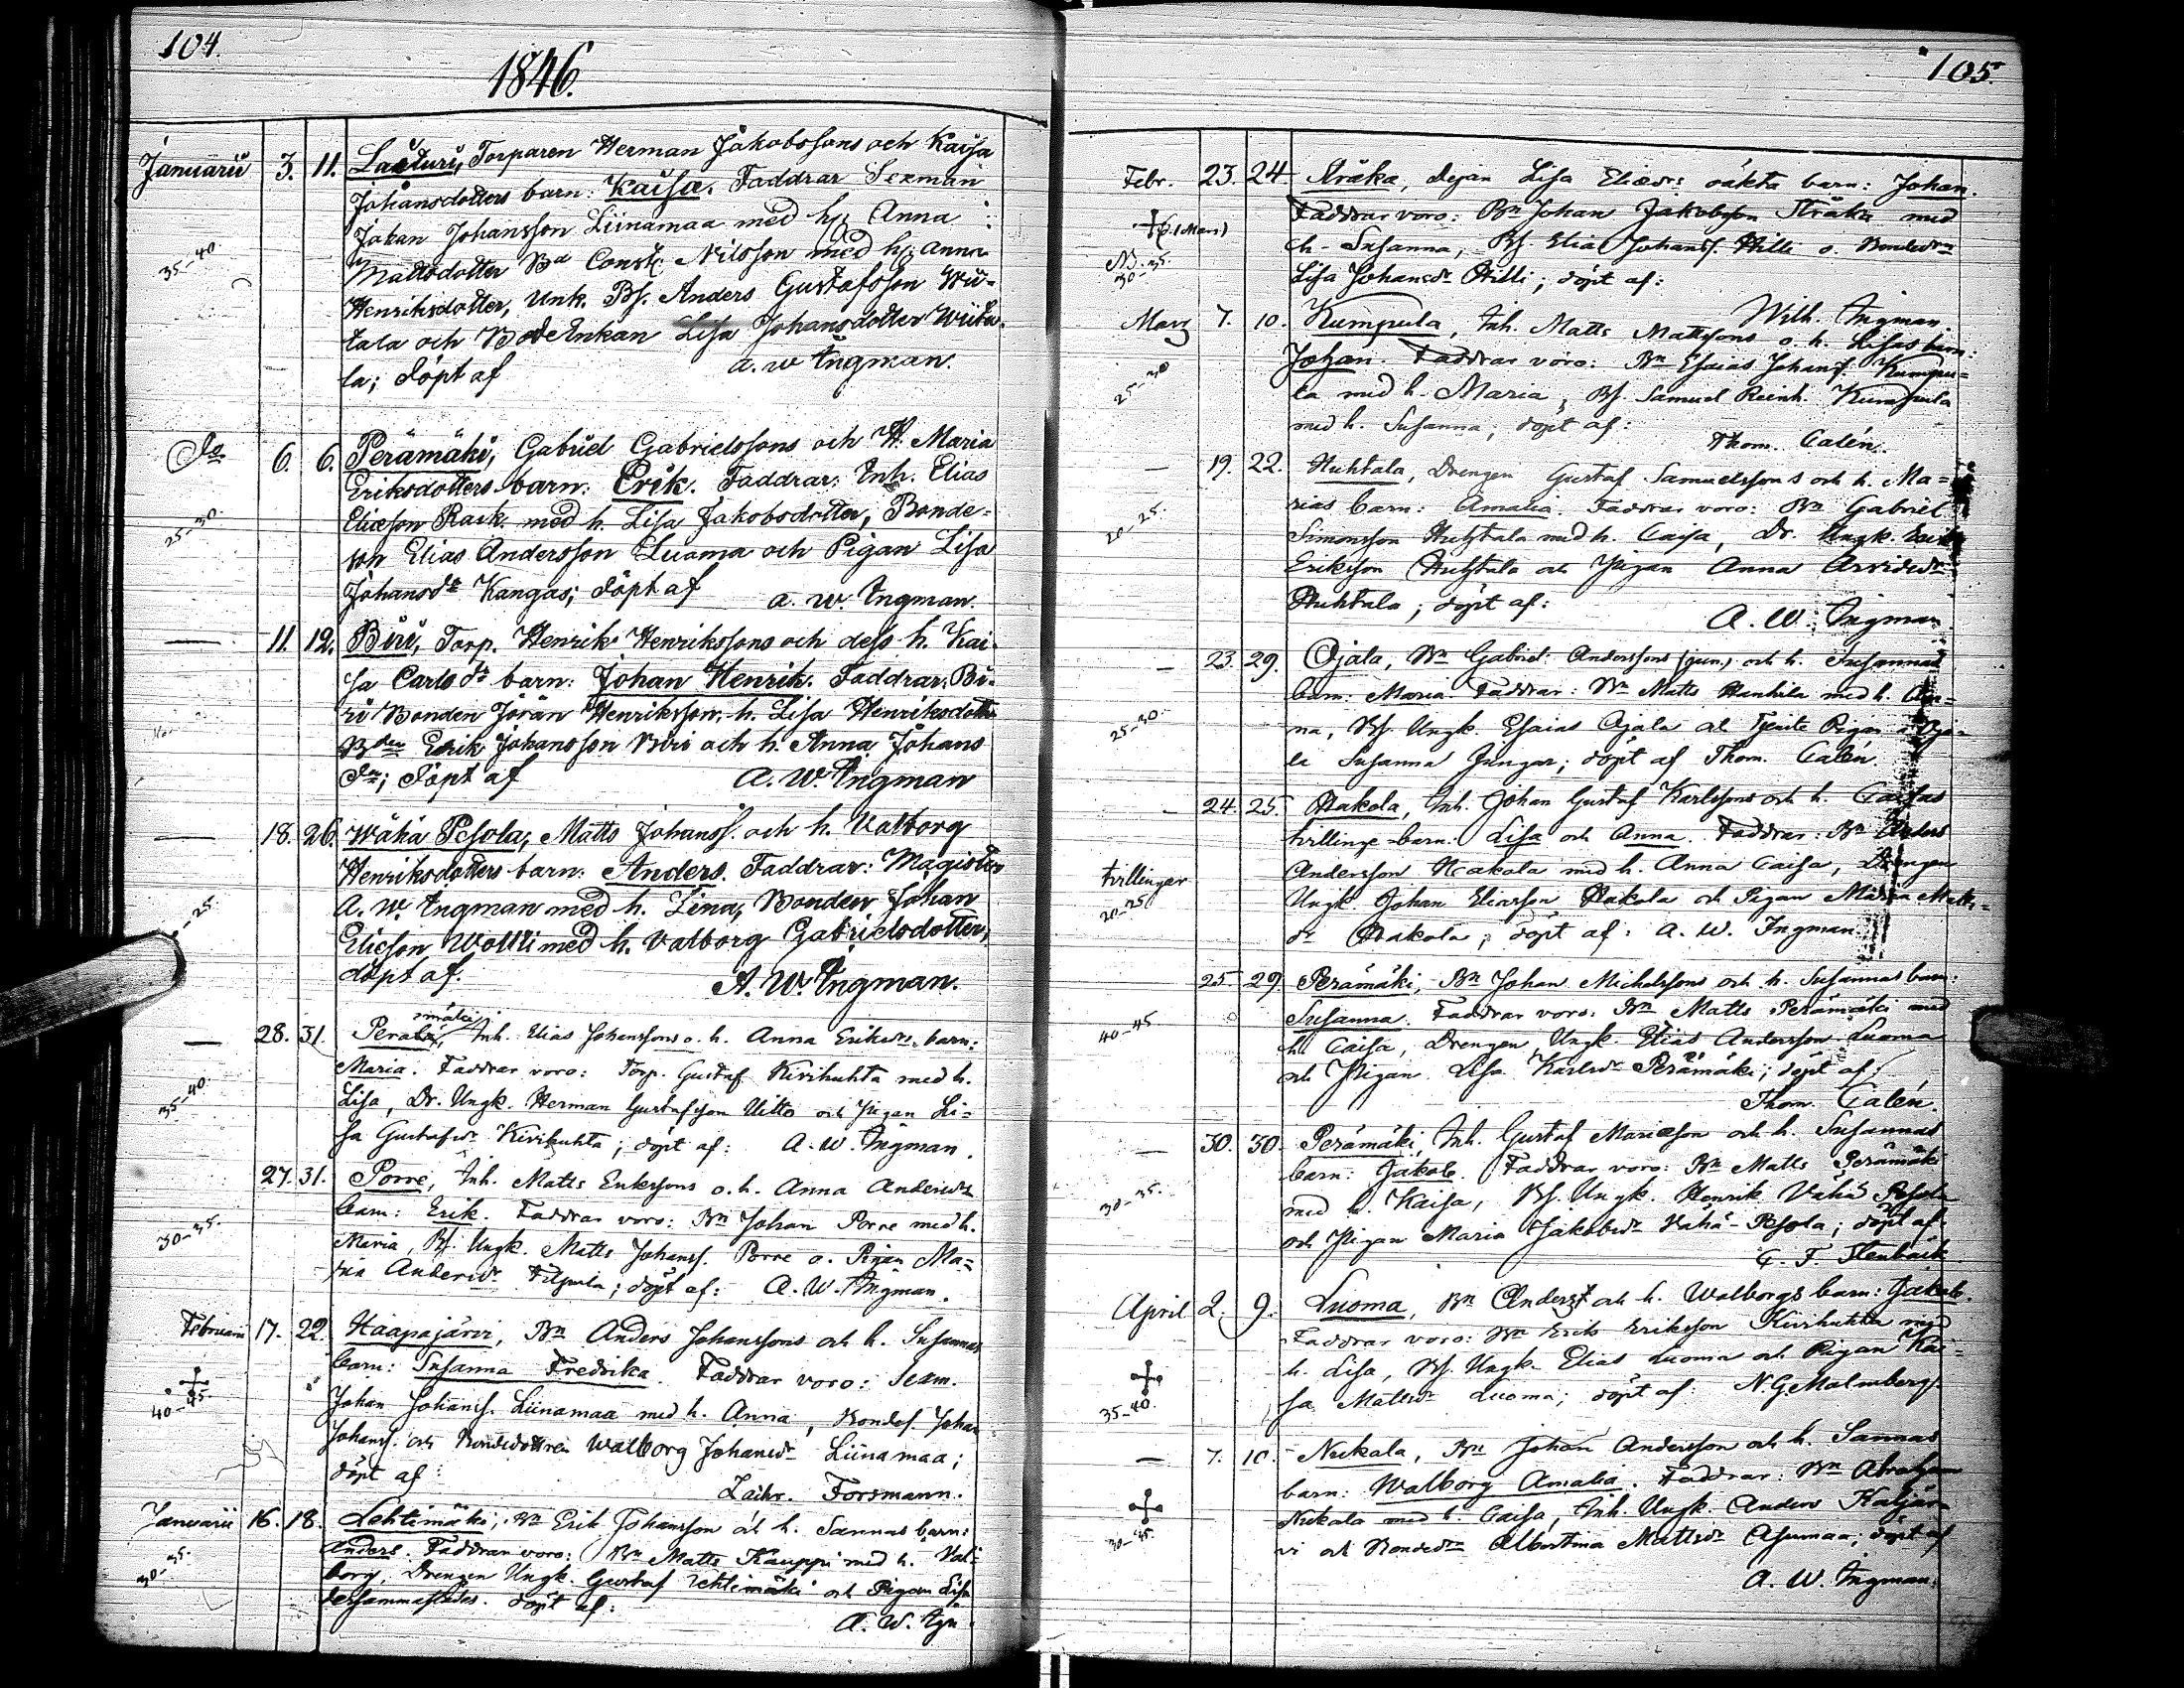 104.
1846.
Januarii 3. 11. Lasturi, Torparen Herman Jakobssons och Kaisa
Johansdotters barn: Kaisa. Faddrar Sexman
Johan Johansson Liinamaa med h. Anna
35-40. Mattsdotter Bd Const. Nilsson med h. Anna
Henriksdotter, Unk. Bs. Anders Gustafsson Wii-
tala och Bode Enkan Lisa Johansdotter Wiita-
la; döpt af A. W. Ingman.
Do 6. 6. Perämäki, Gabriel Gabrielssons och H. Maria
Eriksdotters barn: Erik. Faddrar: Inh. Elias
25-30. Eliæson Rask med h. Lisa Jakobsdotter, Bonde-
son Elias Andersson Luoma och Pigan Lisa
Johansdr Kangas; döpt af A. W. Ingman.
— 11. 12. Biri, Torp. Henrik Henrikssons och dess h. Kai-
sa Carlsdr barn: Johan Henrik. Faddrar: Bi-
ri Bonden Jöran Henriksson, h. Lisa Henriksdotter
Bden Erik Johansson Biri och h. Anna Johans
dr; döpt af A. W. Ingman
— 18. 26. Wähä Pesola, Matts Johanss. och h. Valborg
Henriksdotters barn: Anders. Faddrar: Magister
-25. A. W. Ingman med h. Lina, Bonden Johan
Elieson Woltti med h. Valborg Gabrielsdotter,
döpt af. A. W. Ingman.
mäki
— 28. 31. Perälä, Inh. Elias Johanssons o. h. Anna Eriksdrs barn:
Maria. Faddrar voro: Torp. Gustaf Kivihuhta med h.
35-40. Lisa, Dr. Ungk. Herman Gustafsson Uitto och Pigan Li-
sa Gustafsdr Kivihuhta; döpt af: A. W. Ingman.
27. 31. Porre, Inh. Matts Erikssons o. h. Anna Andersdrs
barn: Erik. Faddrar voro: Bn Johan Porre med h.
30-35. Maria, Bs. Ungk. Matts Johanss. Porre o. Pigan Ma-
ria Andersdr Filpula; döpt af: A. W. Ingman.
Februarii 17. 22. Haapajärvi, Bn Anders Johanssons och h. Susannas
barn: Susanna Fredrika. Faddrar voro: Sexm.
40-45. Johan Johanss. Liinamaa med h. Anna, Bondes. Johan
Johanss. och Bondedottren Walborg Johansdr Liinamaa;
döpt af: Zachr. Forsmann.
Januarii 16. 18. Lehtimäki, Bn Erik Johansson och h. Sannas barn:
Anders. Faddrar voro: Bn Matts Kauppi med h. Val-
30-35. borg, Drengen Ungk. Gustaf Lehtimäki och Pigan Lisa
dersammastädes. döpt af: A. W. Ign.
105.
Febr. 23. 24. Sträka, Pejan Lisa Eliædrs oäkta barn: Johan.
Faddrar voro: Bn Johan Jakobsson Sträka med
h. Susanna, Bs. Elias Johanss. Hilli o. Bondedrn
30-35. Lisa Johansdr Hilli; döpt af:
Wilh. Ingman.
Mars 7. 10. Kumpula, Inh. Matts Mattssons o. h. Lisas barn:
Johan. Faddrar voro: Bn Esaias Johanss. Kumpu-
25-30 la med h. Maria, Bs. Samuel Reinh. Kumpula
med h. Susanna; döpt af: Thom. Calén.
— 19. 22. Huhtala, Drengen Gustaf Samuelssons och h. Ma-
rias barn: Amalia. Faddrar voro: Bn Gabriel
20-25. Simonsson Huhtala med h. Caisa, Dr. Ungk. Erik
Eriksson Huhtala och Pigan Anna Arvidsdr
Huhtala; döpt af: A. W. Ingman.
— 23. 29. Ojala, Bn Gabriel Anderssons (jun.) och h. Susannas
barn: Maria. Faddrar: Bn Matts Hanhila med h. An-
25-30. na, Bs. Ungk. Esaias Ojala och Tjenste Pigan
Susanna Jungar; döpt af Thom. Calén.
— 24. 25. Haakola, Inh. Johan Gustaf Karlssons och h. Caisas
tvillinge-barn: Lisa och Anna. Faddrar: Bn Anders
tvillingar Andersson Haakola med h. Anna Caisa, Drengen
20-25 Ungk. Johan Eliasson Haakola och Pigan Maria Matts-
dr Haakola; döpt af: A. W. Ingman.
25. 29. Perämäki, Bn Johan Michelssons och h. Susannas barn:
Susanna. Faddrar voro: Bn Matts Perämäki med
40-45 h. Caisa, Drengen Ungk. Elias Andersson Luoma
och Pigan Lisa Karlsdr Perämäki; döpt af:
Thom. Calén.
— 30. 30. Perämäki, Inh. Gustaf Mariæson och h. Susannas
barn: Jakob. Faddrar voro: Bn Matts Perämäki
30-35. med h. Kaisa, Bs. Ungk. Henrik Vähä Pesola
och Pigan Maria Jakobsdr Vähä-Pesola; döpt af
C. F. Stenbäck
April 2. 9. Luoma, Bn Anders och h. Walborgs barn: Jakob.
Faddrar voro: Bn Erik Eriksson Kivihuhta med
h. Lisa, Bs. Ungk. Elias Luoma och Pigan Kai-
35-40. sa Mattsdr Luoma; döpt af: N. G. Malmberg.
— 7. 10. Nukala, Bn Johan Andersson och h. Sannas
barn: Walborg Amalia. Faddrar: Bn Abraham
Nukala med h. Caisa, Inh. Ungk. Anders Katjär-
vi och Bondedrn Albertina Mattsdr Asumaa; döpt af
A. W. Ingman.